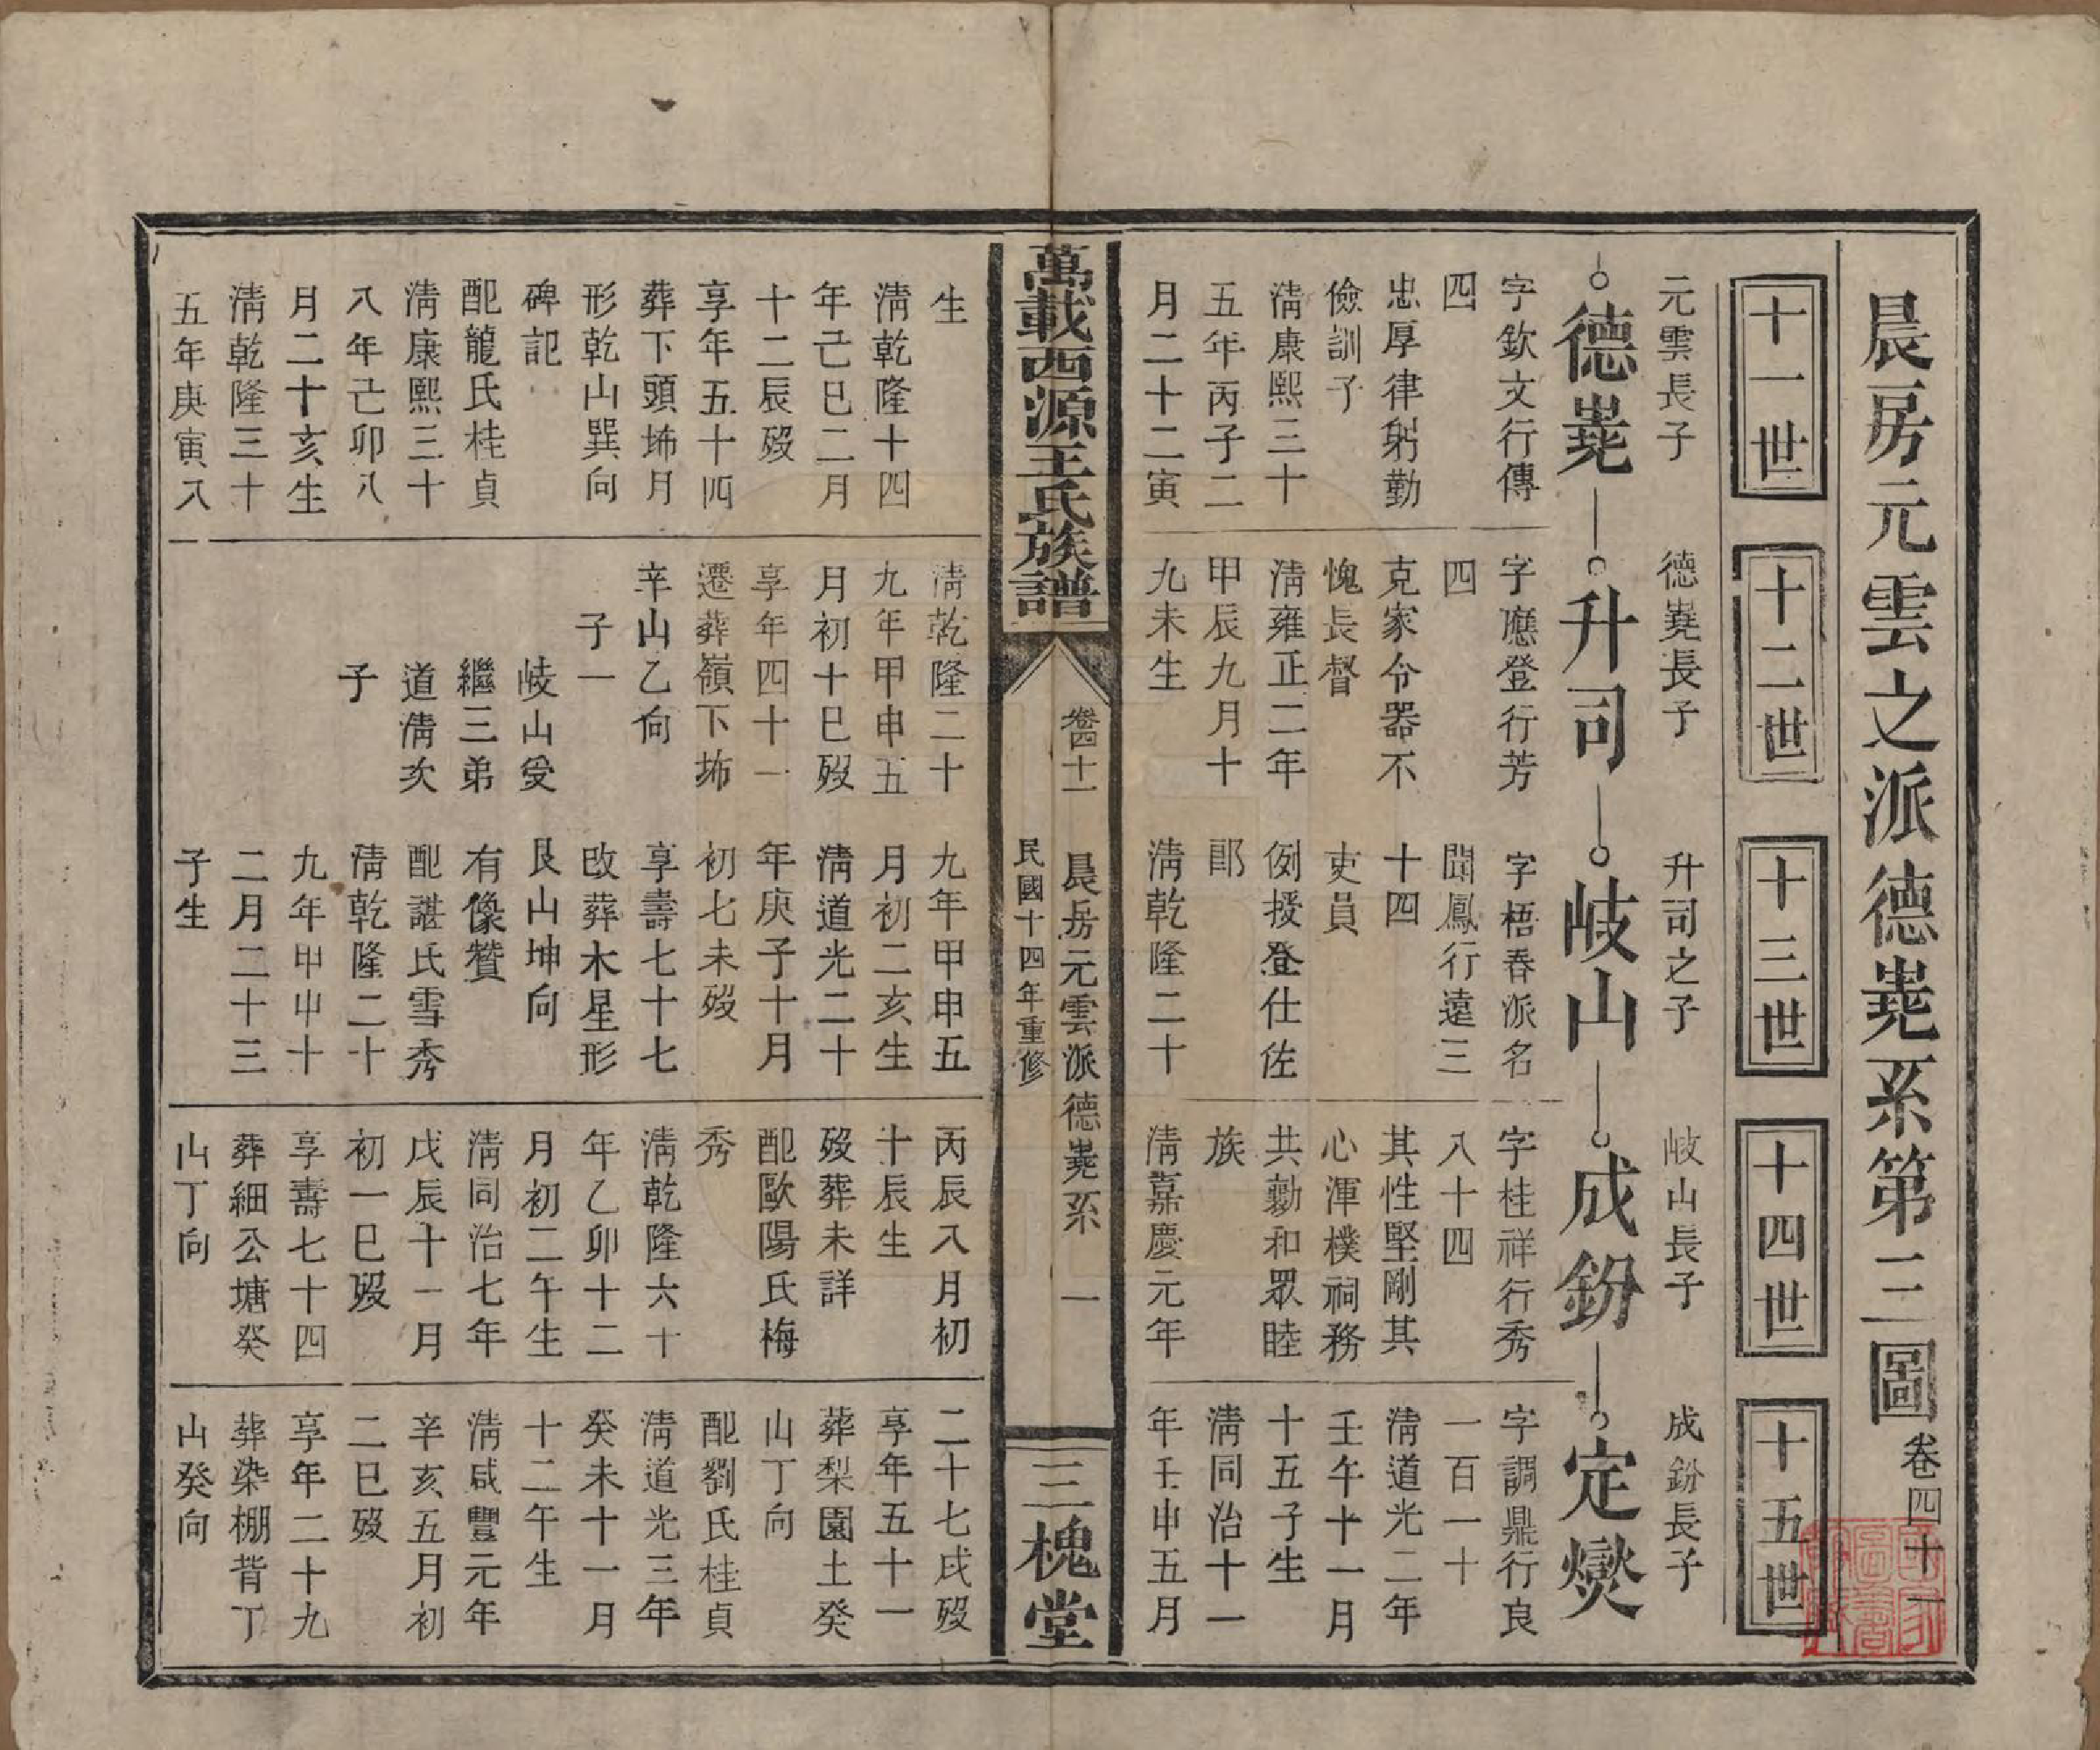 晨房元雲之派德嵬系第三圖 卷四十一
十一世
十二世
十三世
十四世
十五世
元雲長子
德嵬
字欽文行傳
四
忠厚律躬勤
儉訓子
淸康熙三十
五年丙子二
月二十二寅
生
淸乾隆十四
年己巳二月
十二辰歿
享年五十四
葬下頭㘵月
形乾山巽向
碑記
配龍氏桂貞
淸康熙三十
八年己卯八
月二十亥生
淸乾隆三十
五年庚寅八
德嵬長子
升司
字應登行芳
四
克家令器不
愧長督
淸雍正二年
甲辰九月十
九未生
淸乾隆二十
九年甲申五
月初十巳歿
享年四十一
遷葬嶺下㘵
辛山乙向
子一
岐山受
繼三弟
道淸次
子
升司之子
岐山
字梧春派名
聞鳳行遠三
十四
吏員
例授登仕佐
郎
淸乾隆二十
九年甲申五
月初二亥生
淸道光二十
年庚子十月
初七未歿
享壽七十七
改葬木星形
艮山坤向
有像贊
配諶氏雪秀
淸乾隆二十
九年甲申十
二月二十三
子生
岐山長子
成鈖
字桂祥行秀
八十四
其性堅剛其
心渾樸祠務
共勷和眾睦
族
淸嘉慶元年
丙辰八月初
十辰生
歿葬未詳
配歐陽氏梅
秀
淸乾隆六十
年乙卯十二
月初二午生
淸同治七年
戊辰十一月
初一巳歿
享壽七十四
葬細公塘癸
山丁向
成鈖長子
定爕
字調鼎行良
一百一十
淸道光二年
壬午十一月
十五子生
淸同治十一
年壬申五月
二十七戌歿
享年五十一
葬梨園土癸
山丁向
配劉氏桂貞
淸道光三年
癸未十一月
十二午生
淸咸豐元年
辛亥五月初
二巳歿
享年二十九
葬染棚背丁
山癸向
萬載西源王氏族譜
卷四十一
晨房元雲派德嵬系 一
民國十四年重修
三槐堂